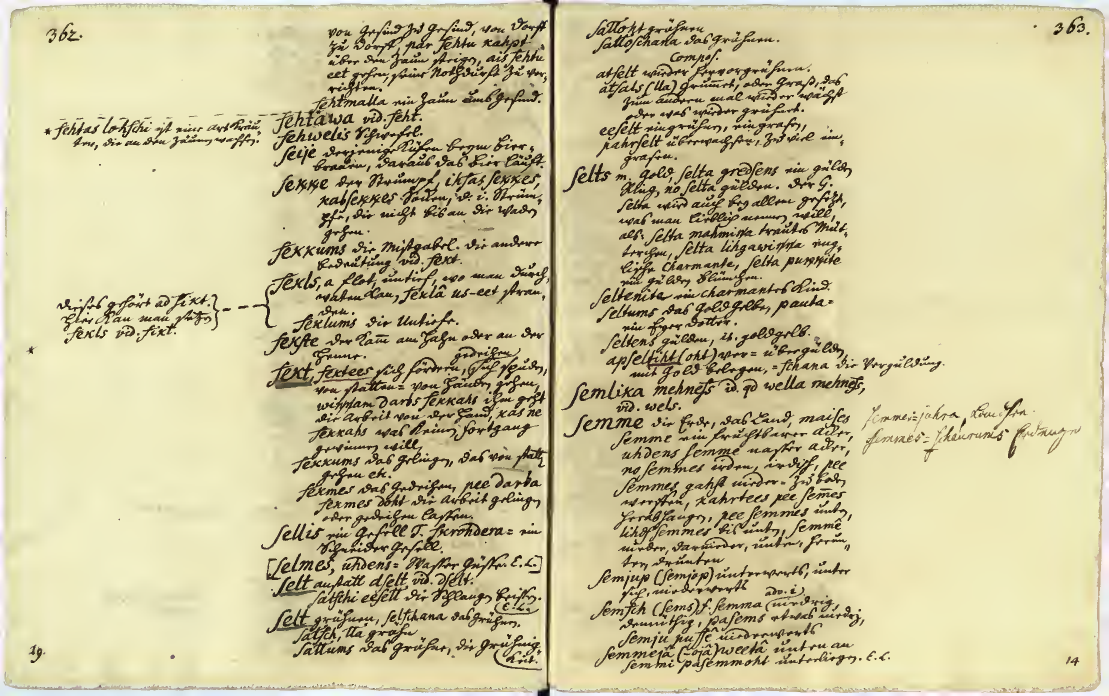 362.
von Gesind zu Gesind, von Dorff
zu Dorff, par sehtu kahpt
über den Zaun steigen, ais sehtu
eet gehen, seine Nothdurft zu ver-
richten.
sehtmalla ein Zaun ums Gesind.
* sehtas lohschi ist eine Art Kräu-
ter, die an den Zäunen wachsen.
sehtawa vid. seht.
sehwelis Schwefel.
seije derjenige Küfen beym Bier-
brauen, daraus das Bier läufft.
sekke der Strumpf, ihsas sekkes,
kabsekkes Socken, d. i. Strüm-
pfe, die nicht bis an die Waden
gehen.
sekkums die Mistgabel. die andere
Bedeutung vid. sekt.
sekls, a flot, untief, wo man durch-
waten kan, seklâ us-eet stran-
den.
seklums die Untiefe.
dieses gehört ad sikt.
hier kan man setzen
sekls vid. sikt.
sekste der Kam̄ am Hahn oder an der
Henne.
*
sekt, sektees sich fördern, gedeihen, sich spuden,
von statten = von Händen gehen,
wiņņam darbs sekkahs ihm geht
die Arbeit von der Hand, kas ne
sekkahs was keinen Fortgang
gewinnen will.
sekkums das Gelingen, das von statten
gehen etc.
sekmes das Gedeihen, pee darba
sekmes doht die Arbeit gelingen
oder gedeihen lassen.
sellis ein Gesell T. skrohdera = ein
Schneider Gesell.
[selmes, uhdens = Wasser Güsse. E. L.]
selt anstatt dselt vid. dselt.
satschi eeselt die Schlangen beissen.
E. L.
selt grühnen, selschana das Grühnen.
satsch, lla grühn
sallums das Grühne, die Grühnig-
keit.
19.
363.
salloht grühnen
salloschana das Grühnen.
Compos.
atselt wieder hervorgrühnen.
atsals (lla) Grummet, oder Graß, das
zum andern mal wieder wächst
oder was wieder grühnet.
eeselt eingrühnen, eingrasen,
pahrselt überwachsen, zu viel ein-
grasen.
selts m. Gold, selta gredsens ein gülden
Ring, no selta gülden. der G.
selta wird auch bey allem gesetzt,
was man lieblich nennen will,
als: selta mahmiņa trautes Müt-
terchen, selta lihgawiņa eng-
lische Charmante, selta puķķite
ein gülden Blümchen.
seltenite ein charmantes Kind.
seltums das Goldgelbe, pauta =
ein Eyer Dotter.
seltens gülden, it. goldgelb.
apseltiht (oht) ver = übergülden,
mit Gold belegen, = schana die Vergüldung.
semlika mehness id. qd wella mehness,
vid. wels.
semme die Erde, das Land, maises
semme ein fruchtbarer Acker,
uhdens semme nasser Acker,
no semmes irden, irdisch, pee
semmes gahst nieder = zu boden
werffen, kahrtees pee semes
herabhangen, pee semmes unten,
lihds semmes bis unten, semmê
nieder, darnieder, unten, herun-
ter, drunten
semmes = schaurums Erdenge
semjup (semjop) unterwerts, unter
sich, niederwerts
adv. i
semsch (sems) f. semma niedrig,
demüthig, pasems etwas niedrig,
semju pusse niederwerts
semmejâ (ojâ) weetâ unten an
semmi pasemmoht unterliegen. E. L.
14